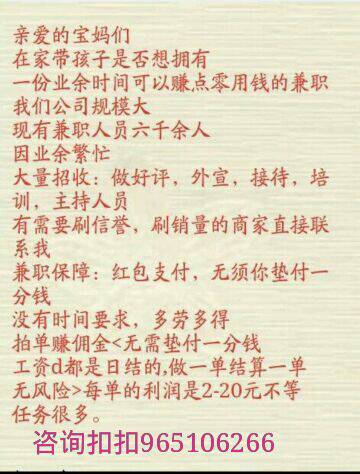 亲爱的宝妈们
在家带孩子是否想拥有
一份业余时间可以赚点零用钱的兼职
我们公司规模大
现有兼职人员六千余人
因业余繁忙
大量招收：做好评，外宣，接待，培
训，主持人员
有需要刷信誉，刷销量的商家直接联
系我
兼职保障：红包支付，无须你垫付一
分钱
没有时间要求，多劳多得
拍单赚佣金<无需垫付一分钱
工资d都是日结的,做一单结算一单
无风险>每单的利润是2-20元不等
任务很多。
咨询扣扣965106266